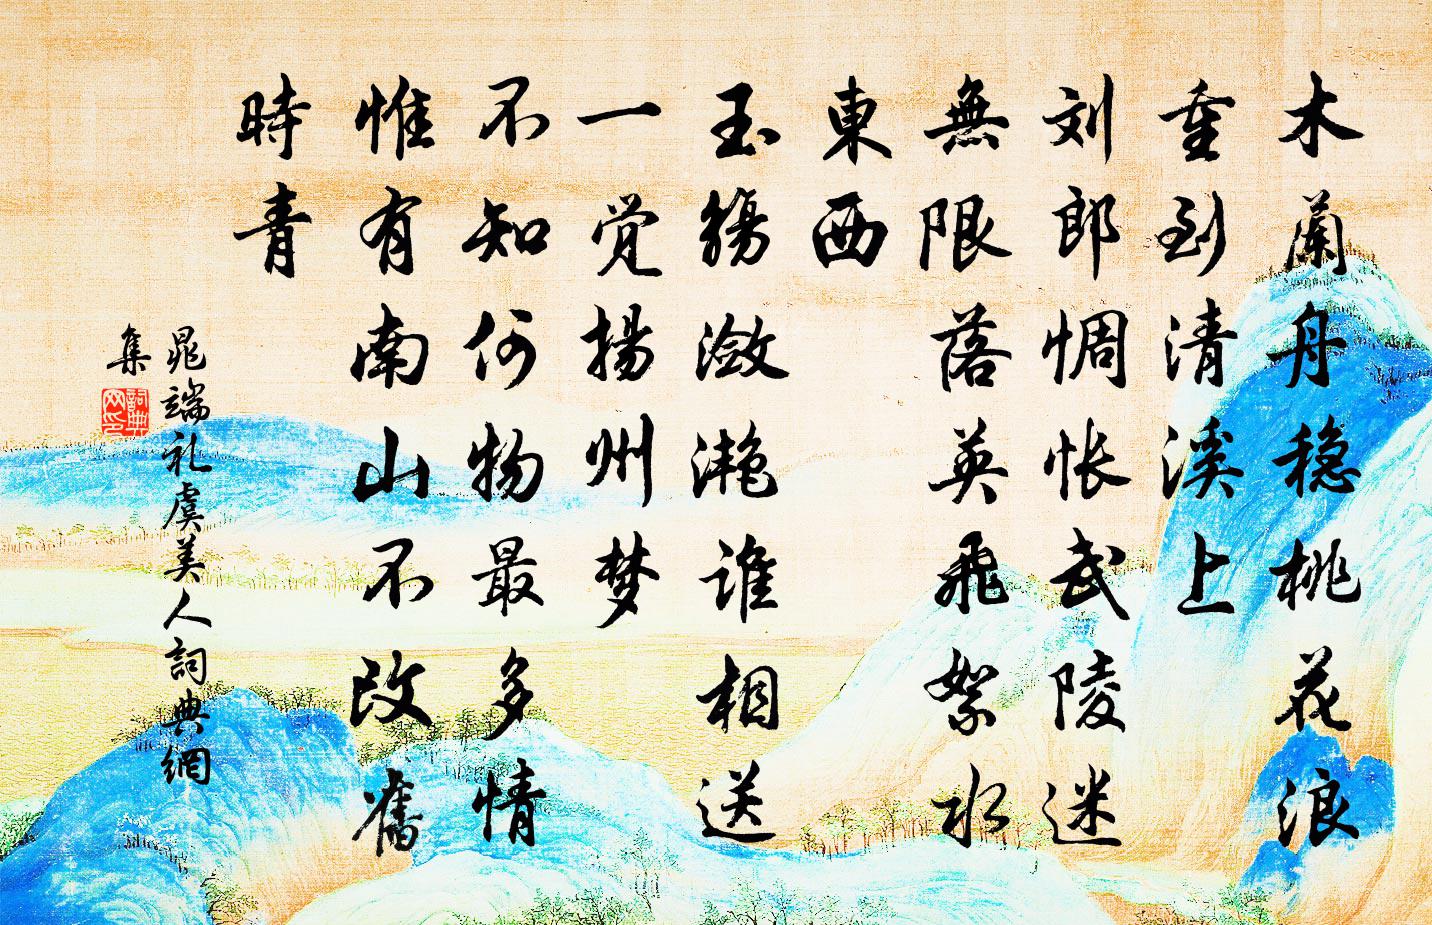 木蘭舟稳桃花浪
重到清溪上
刘郎惆怅武陵迷
無限落英飛絮水
東西
玉觞潋滟谁相送
一觉揚州梦
不知何物最多情
惟有南山不改舊
時青
晁端礼虞美人詞典網
集
詞典
网印